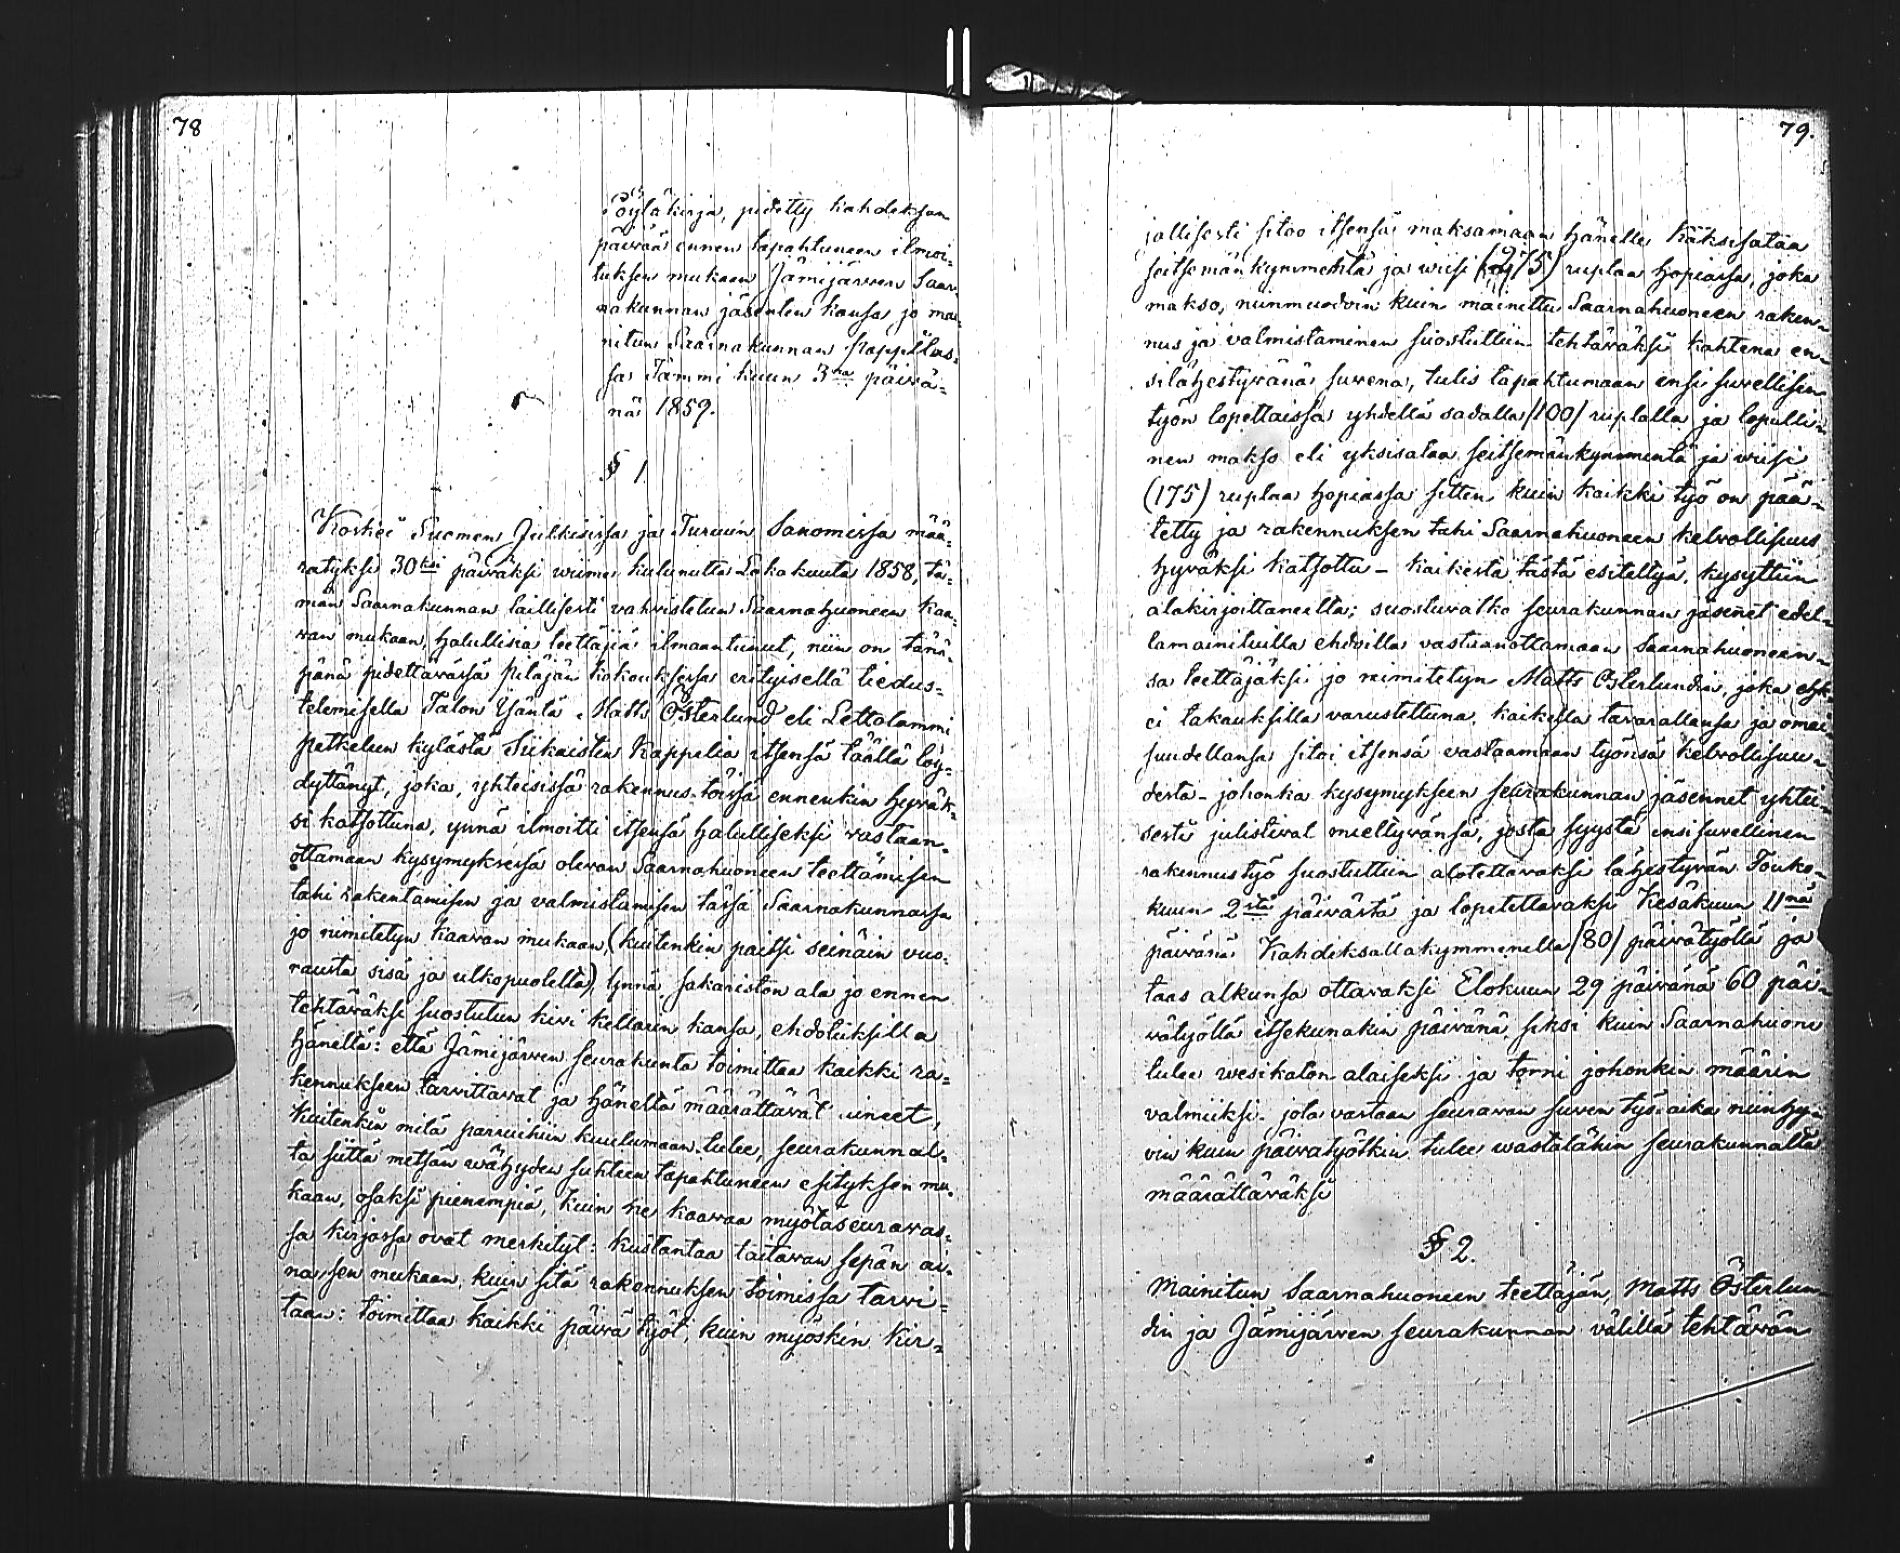 78
Pöyläkirja, pidetty kahdeksan
päivää ennen tapahtuneen ilmoi-
tuksen mukaan Jämijärwen Saar-
nakunnan jäsenten kansa jo mai-
nitun Saarnakunnan pappilas-
sa Tammi kuun 3na päivä-
nä 1859.
§ 1.
Koskei Suomen Julkisissa ja Turuun Sanomissa mää-
rätyksi 30ksi päiväksi wiime kulunutta Lokakuuta 1858, tä-
män Saarnakunnan laillisesti vahvistetun Saarnahuoneen kaa-
van mukaan, halullisia teettäjiä ilmaantunut, niin on tänä-
pänä pidettävässä pitäjän kokouksessa erityisellä tiedus-
telemisella Talon Isäntä Matts Österlund eli Lettolammi
Petkelun kylästä Siikaisten Kappelia itsensä täällä löy-
dyttänyt, joka, yhteisissä rakennus-töissä ennenkin hyväk-
si katsottuna, ynnä ilmoitti itsensä halulliseksi vastaan-
ottamaan kysymyksessä olevan Saarnahuoneen teettämisen
tahi rakentamisen ja valmistamisen tässä Saarnakunnassa
jo nimitetyn kaavan mukaan, (kuitenkin paitsi seinäin vuo-
rausta sisä ja ulkopuolelta), ynnä sakariston ala jo ennen
tehtäväksi suostutun kivi kellarin kansa, ehdotuksilla
häneltä: että Jämijärwen seurakunta toimittaa kaikki ra-
kennukseen tarvittavat ja häneltä määrättävät aineet,
kuitenkin mitä parruihiin kuulumaan tulee, seurakunnal-
ta siitä metsän wähyden suhteen tapahtuneen esityksen mu-
kaan, osaksi pienempiä, kuin he kaavaa myötäseuravas-
sa kirjassa ovat merkityt: kustantaa taitavan sepän ai-
na sen mukaan, kuin sitä rakennuksen toimissa tarvi-
taan: toimittaa kaikki päivä työt, kuin myöskin kir-
79.
jallisesti sitoo itsensä maksamaan hänelle kaksisataa
seitsemänkymmentä ja wiisi (275) ruplaa hopiassa, joka
makso, niinmuodoin kuin mainittu Saarnahuoneen raken-
nus ja valmistaminen suostuttiin tehtäväksi kahtena en-
silähestyvänä suvena, tulis tapahtumaan ensi suvellisen
työn lopettaissa yhdellä sadalla /100/ ruplalla ja lopulli-
nen makso eli yksisataa seitsemänkymmentä ja wiisi
(175) ruplaa hopiassa sitten kuin kaikki työ on pää-
tetty ja rakennuksen tahi Saarnahuoneen kelvollisuus
hyväksi katsottu – kaikesta tästä esiteltyä, kysyttiin
alakirjoittaneelta; suostuvatko seurakunnan jäsenet edel-
lämainituilla ehdoilla vastaanottamaan Saarnahuoneen-
sa teettäjäksi jo nimitetyn Matts Österlundin, joka ehk-
ei takauksilla varustettuna, kaikella tavarallansa ja omai-
suudellansa sitoi itsensä vastaamaan työnsä kelvollisuu-
desta – johonka kysymykseen seurakunnan jäsennet yhtei-
sesti julistivat mieltyvänsä, josta syystä ensi suvellinen
rakennustyö suostuttiin alotettavaksi lähestyvän Touko-
kuun 2stä päivästä ja lopetettavaksi Kesäkuun 11nä
päivänä Kahdeksallakymmenellä /80/ päivätyöllä ja
taas alkunsa ottavaksi Elokuun 29 päivänä 60 päi-
vätyöllä itsekunakin päivänä, siksi kuin Saarnahuone
tulee wesikaton alaiseksi ja torni johonkin määrin
valmiiksi. jota vastaan seuravan suven työ-aika niinhy-
vin kuin päivatyötkin tulee wastatähin seurakunnalta
määrättäväksi
§ 2.
Mainitun Saarnahuoneen teettäjän, Matts Österlun-
din ja Jämijärwen seurakunnan välillä tehtävän